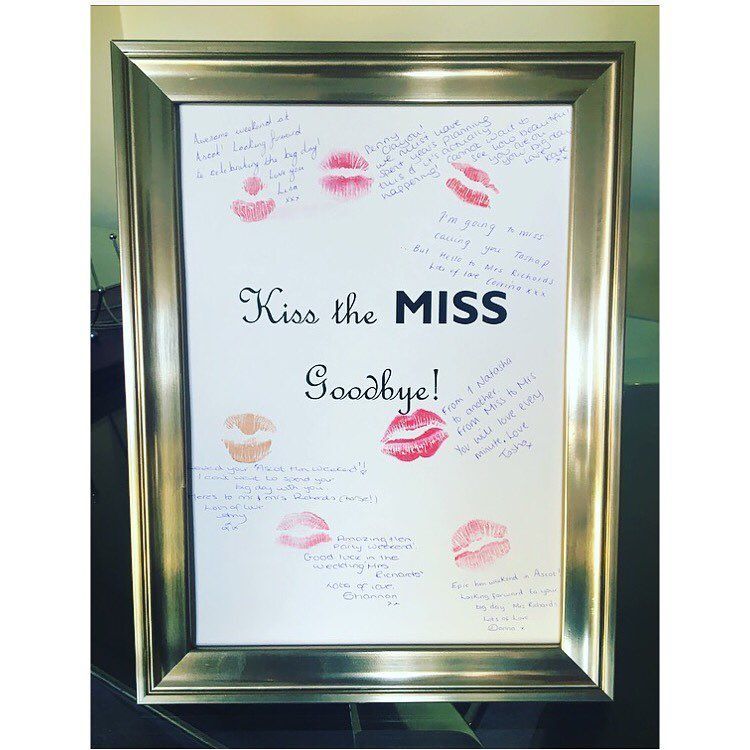 Awesome weekend at
Ascot! Looking forward
to celebrating the big day!
Love you
Lisa
xxx
Penny
yayayay!
we must have
spent years planning
this & it's actually
happening
cannot wait to
see you beautiful
on your big day
Love
Kate
xx
I'm going to miss
calling you Tasha P
... But Hello to Mrs Richards
lots of love Corrina xxx
Kiss the MISS
Goodbye!
From 1 Natasha
to another.
From Miss to Mrs
You will love every
minute. Love
Tasha x
Loved your "Ascot Hen Weekend"!!
I cant wait to spend your
big day with you
Heres to mr & mrs Richards (horse!)
Lots of luv
Amy
xx
Amazing Hen
Party weekend.
Good luck in the
wedding Mrs
Richards
Lots of love
Shannon
xx
Epic hen weekend in Ascot!
Looking forward to your
big day Mrs Richards
Lots of Love
Donna x